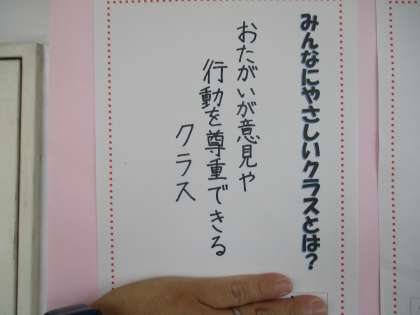 みんなにやさしいクラスとは?
おたがいが意見や
行動を尊重できる
クラス